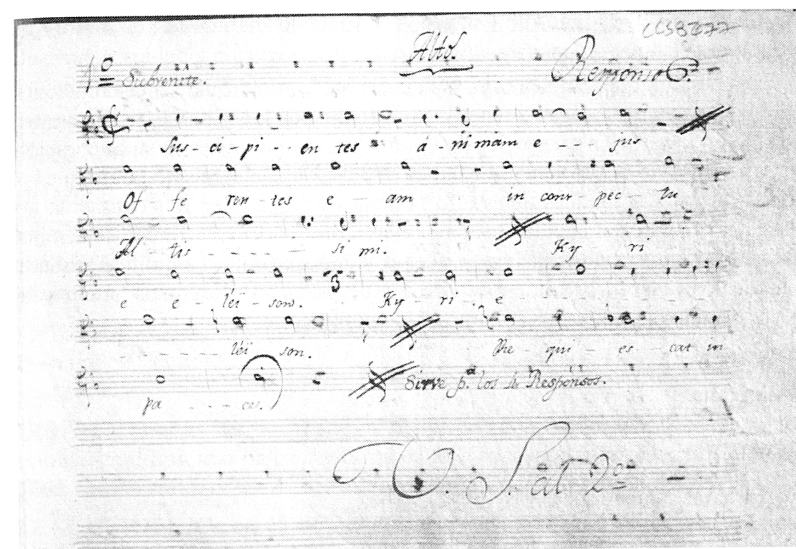 Alto.
Subvenite. Responso 6º.
Sus - ci - pi - - en tes a - ni mam e - - - jus
Of fe ren - tes e - am in cons - pec - tu
Al - tis - - - - - si mi. Ky ri
e e - lei - son. Ky - ri - e
- - - - - lei son. Re - qui - es cat in
pa - - - ce. Sirve pª los 4 Responsos.